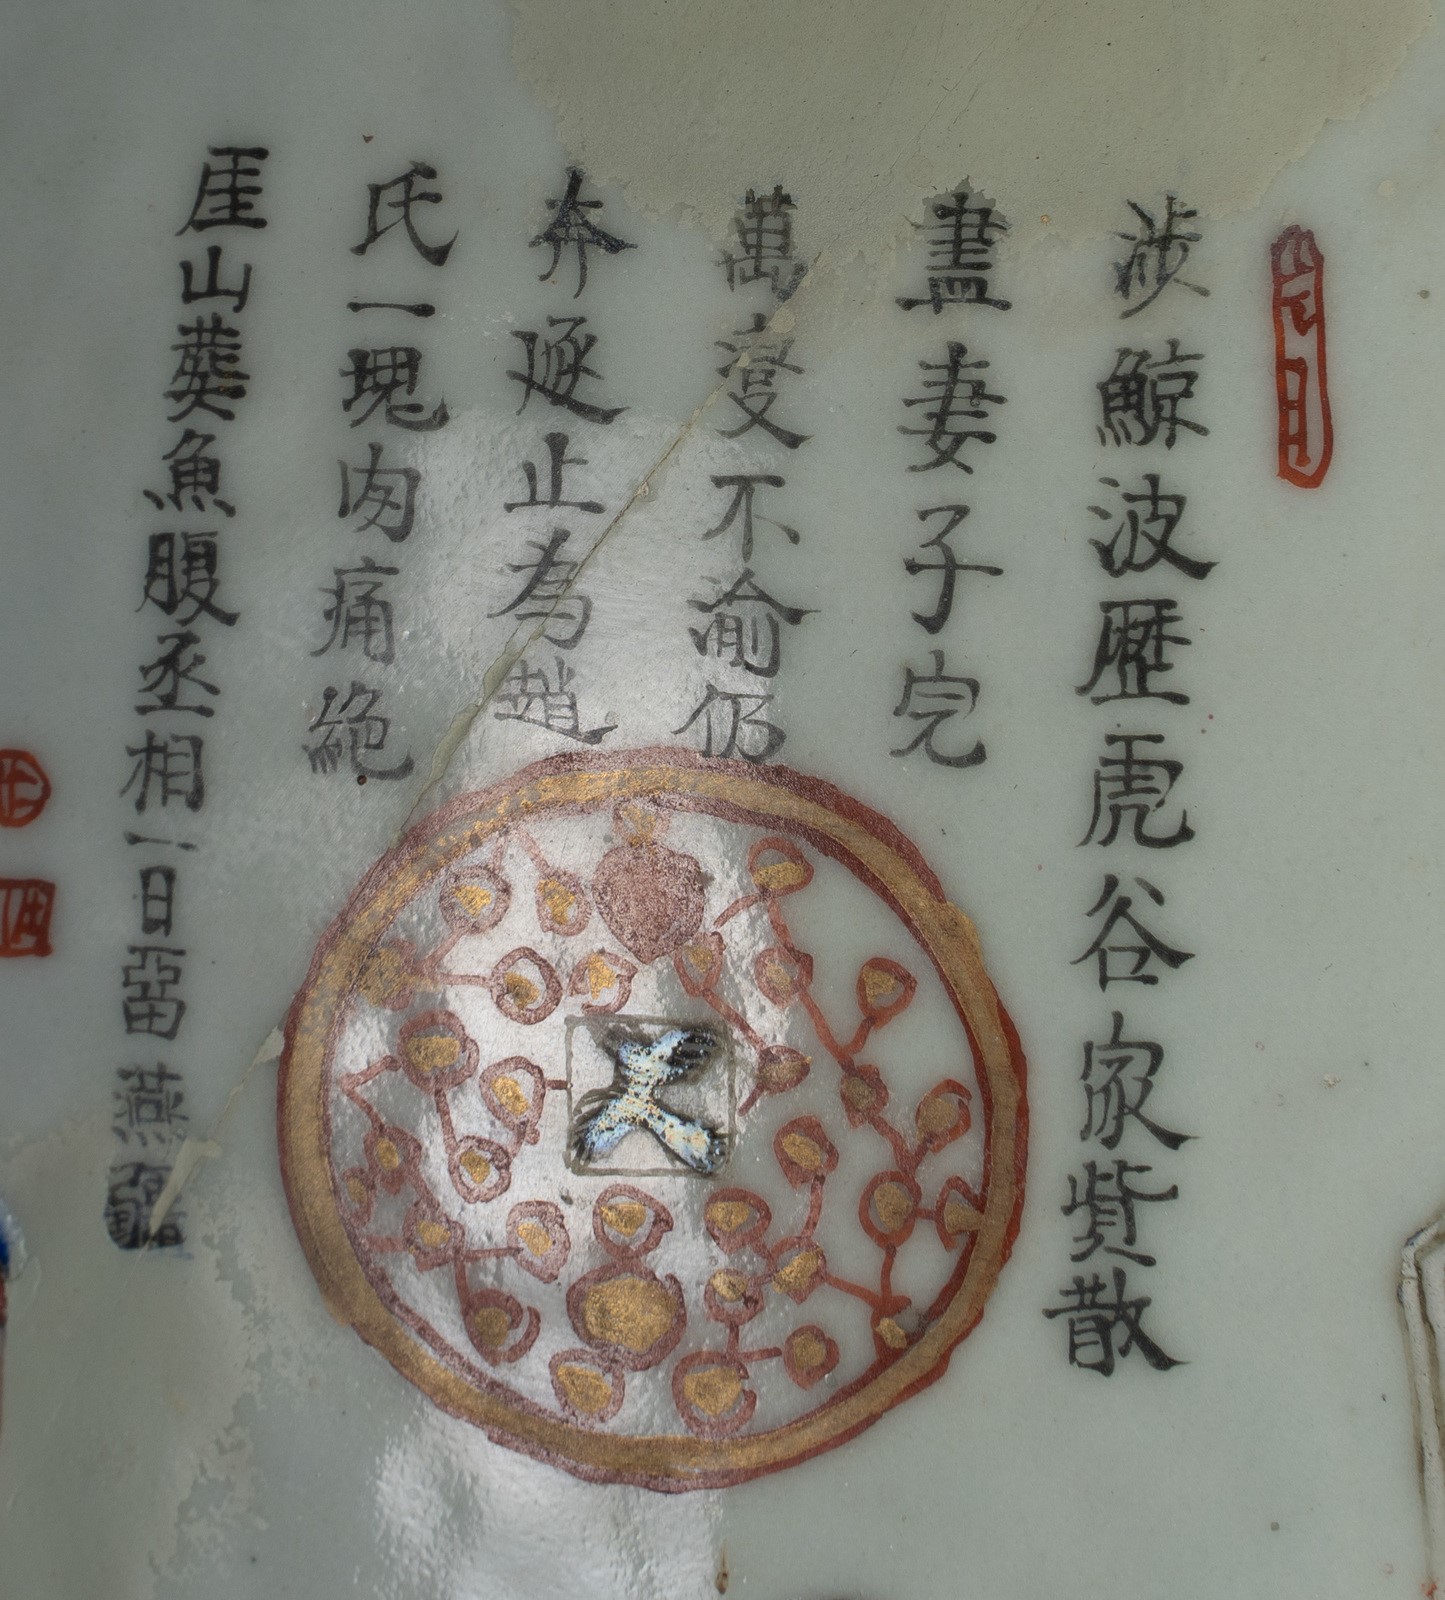 涉鯨波歷虎谷家貲散
盡妻子完
萬變不渝仍
奔逐止為趙
氏一塊肉痛絶
厓山葬魚腹丞相一日畱燕